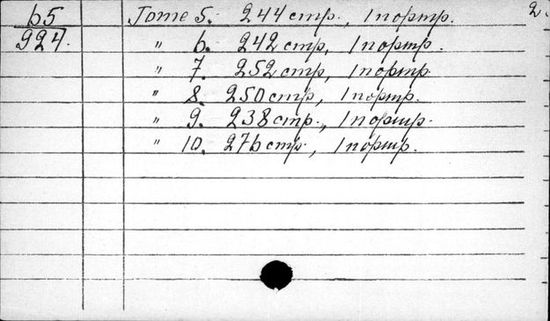 65 Tome 5. 244 стр., 1 портр. 2.
924. " 6. 242 стр., 1 портр.
" 7. 252 стр, 1 портр
" 8. 250 стр, 1 портр.
" 9. 238 стр., 1 портр.
" 10. 276 стр., 1 портр.